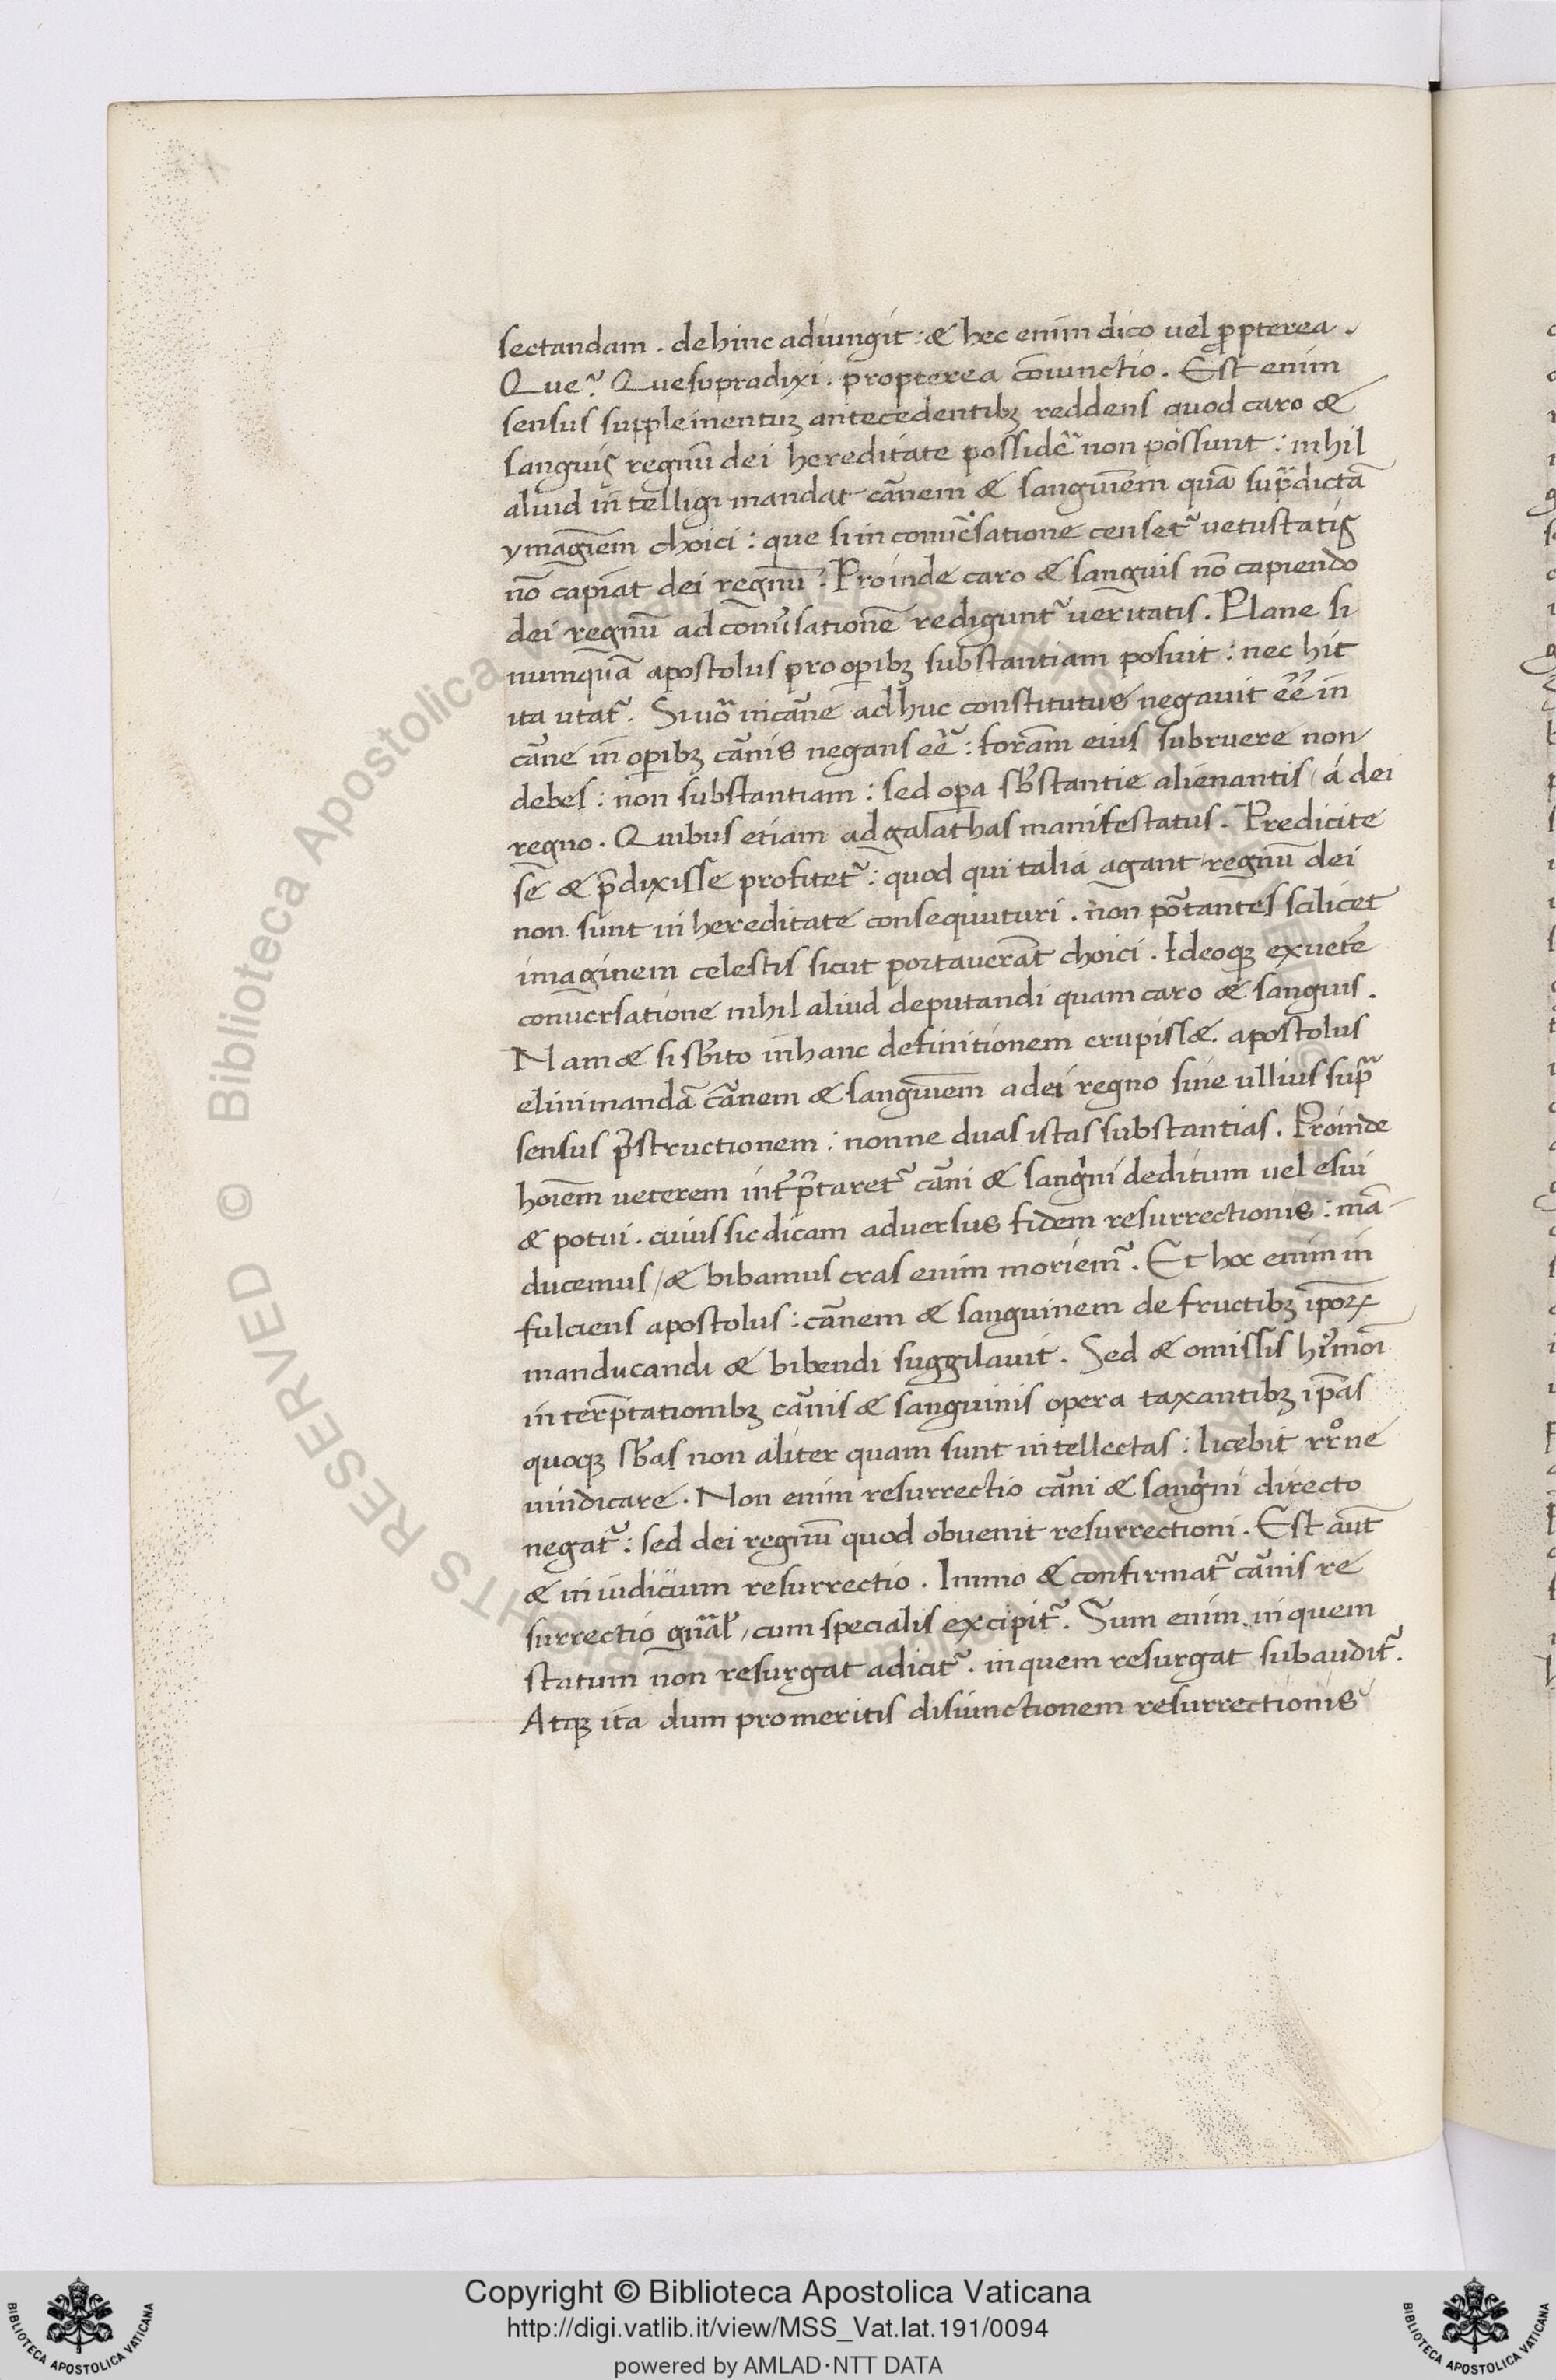 sectandam . dehinc adiungit : & hec enim dico vel ꝓpterea .
Que ? Que supradixi . propterea cōiunctio . Est enim
sensus supplementuꝫ antecedentibꝫ reddens quod caro &
sanguis regnū dei hereditate possidēr non possunt : nihil
aliud intelligi mandat carnem & sanguinem quā supradictā
ymaginem choici : que si in conuersatione censetur vetustatis
nō capiat dei regnū . Proinde caro & sanguis nō capiendo
dei regnū ad conuersationē rediguntur veritatis . Plane si
numquā apostolus pro oꝑibꝫ substantiam posuit : nec hic
ita utatur . Si uero in carne adhuc constitutus negauit ēē in
carne in oꝑibꝫ carnis negans ēē : formam eius subruere non
debes : non substantiam : sed oꝑa substantie alienantis / á dei
regno . Quibus etiam ad galathas manifestatus . Predicite
se & p̄dixisse profitetur : quod qui talia agant regnū dei
non sunt in hereditate consequuturi . non portantes scilicet
imaginem celestis sicut portauerant choici . Ideoqꝫ ex uetere
conuersatione nihil aliud deputandi quam caro & sanguis .
Nam & si subito in hanc definitionem erupiss& . apostolus
eliminandā carnem & sanguinem a dei regno sine ullius supra
sensus p̄structionem : nonne duas istas substantias . Proinde
hoīem veterem interp̄taretur carni & sanguini deditum vel esui
& potui . cuius sic dicam adversus fidem resurrectionis : mā-
ducemus / & bibamus cras enim moriemur . Et hoc enim in
fulciens apostolus : carnem & sanguinem de fructibꝫ ip̄oꝝ
manducandi & bibendi suggilauit . Sed & omissis hꝰmōi
interp̄tationibꝫ carnis & sanguinis opera taxantibꝫ ip̄as
quoqꝫ sb̄as non aliter quam sunt intellectas : licebit rr̊ne
uindicare . Non enim resurrectio carni & sanguini directo
negatur : sed dei regnū quod obuenit resurrectioni . Est aūt
& in iudicium resurrectio . Immo & confirmatur carnis re
surrectio gn̄al̄ , cum specialis excipitur . Sum enim in quem
statum non resurgat adicitur . in quem resurgat subauditur .
Atqꝫ ita dum pro meritis disiunctionem resurrectionis
Copyright © Biblioteca Apostolica Vaticana
http://digi.vatlib.it/view/MSS_Vat.lat.191/0094
powered by AMLAD·NTT DATA